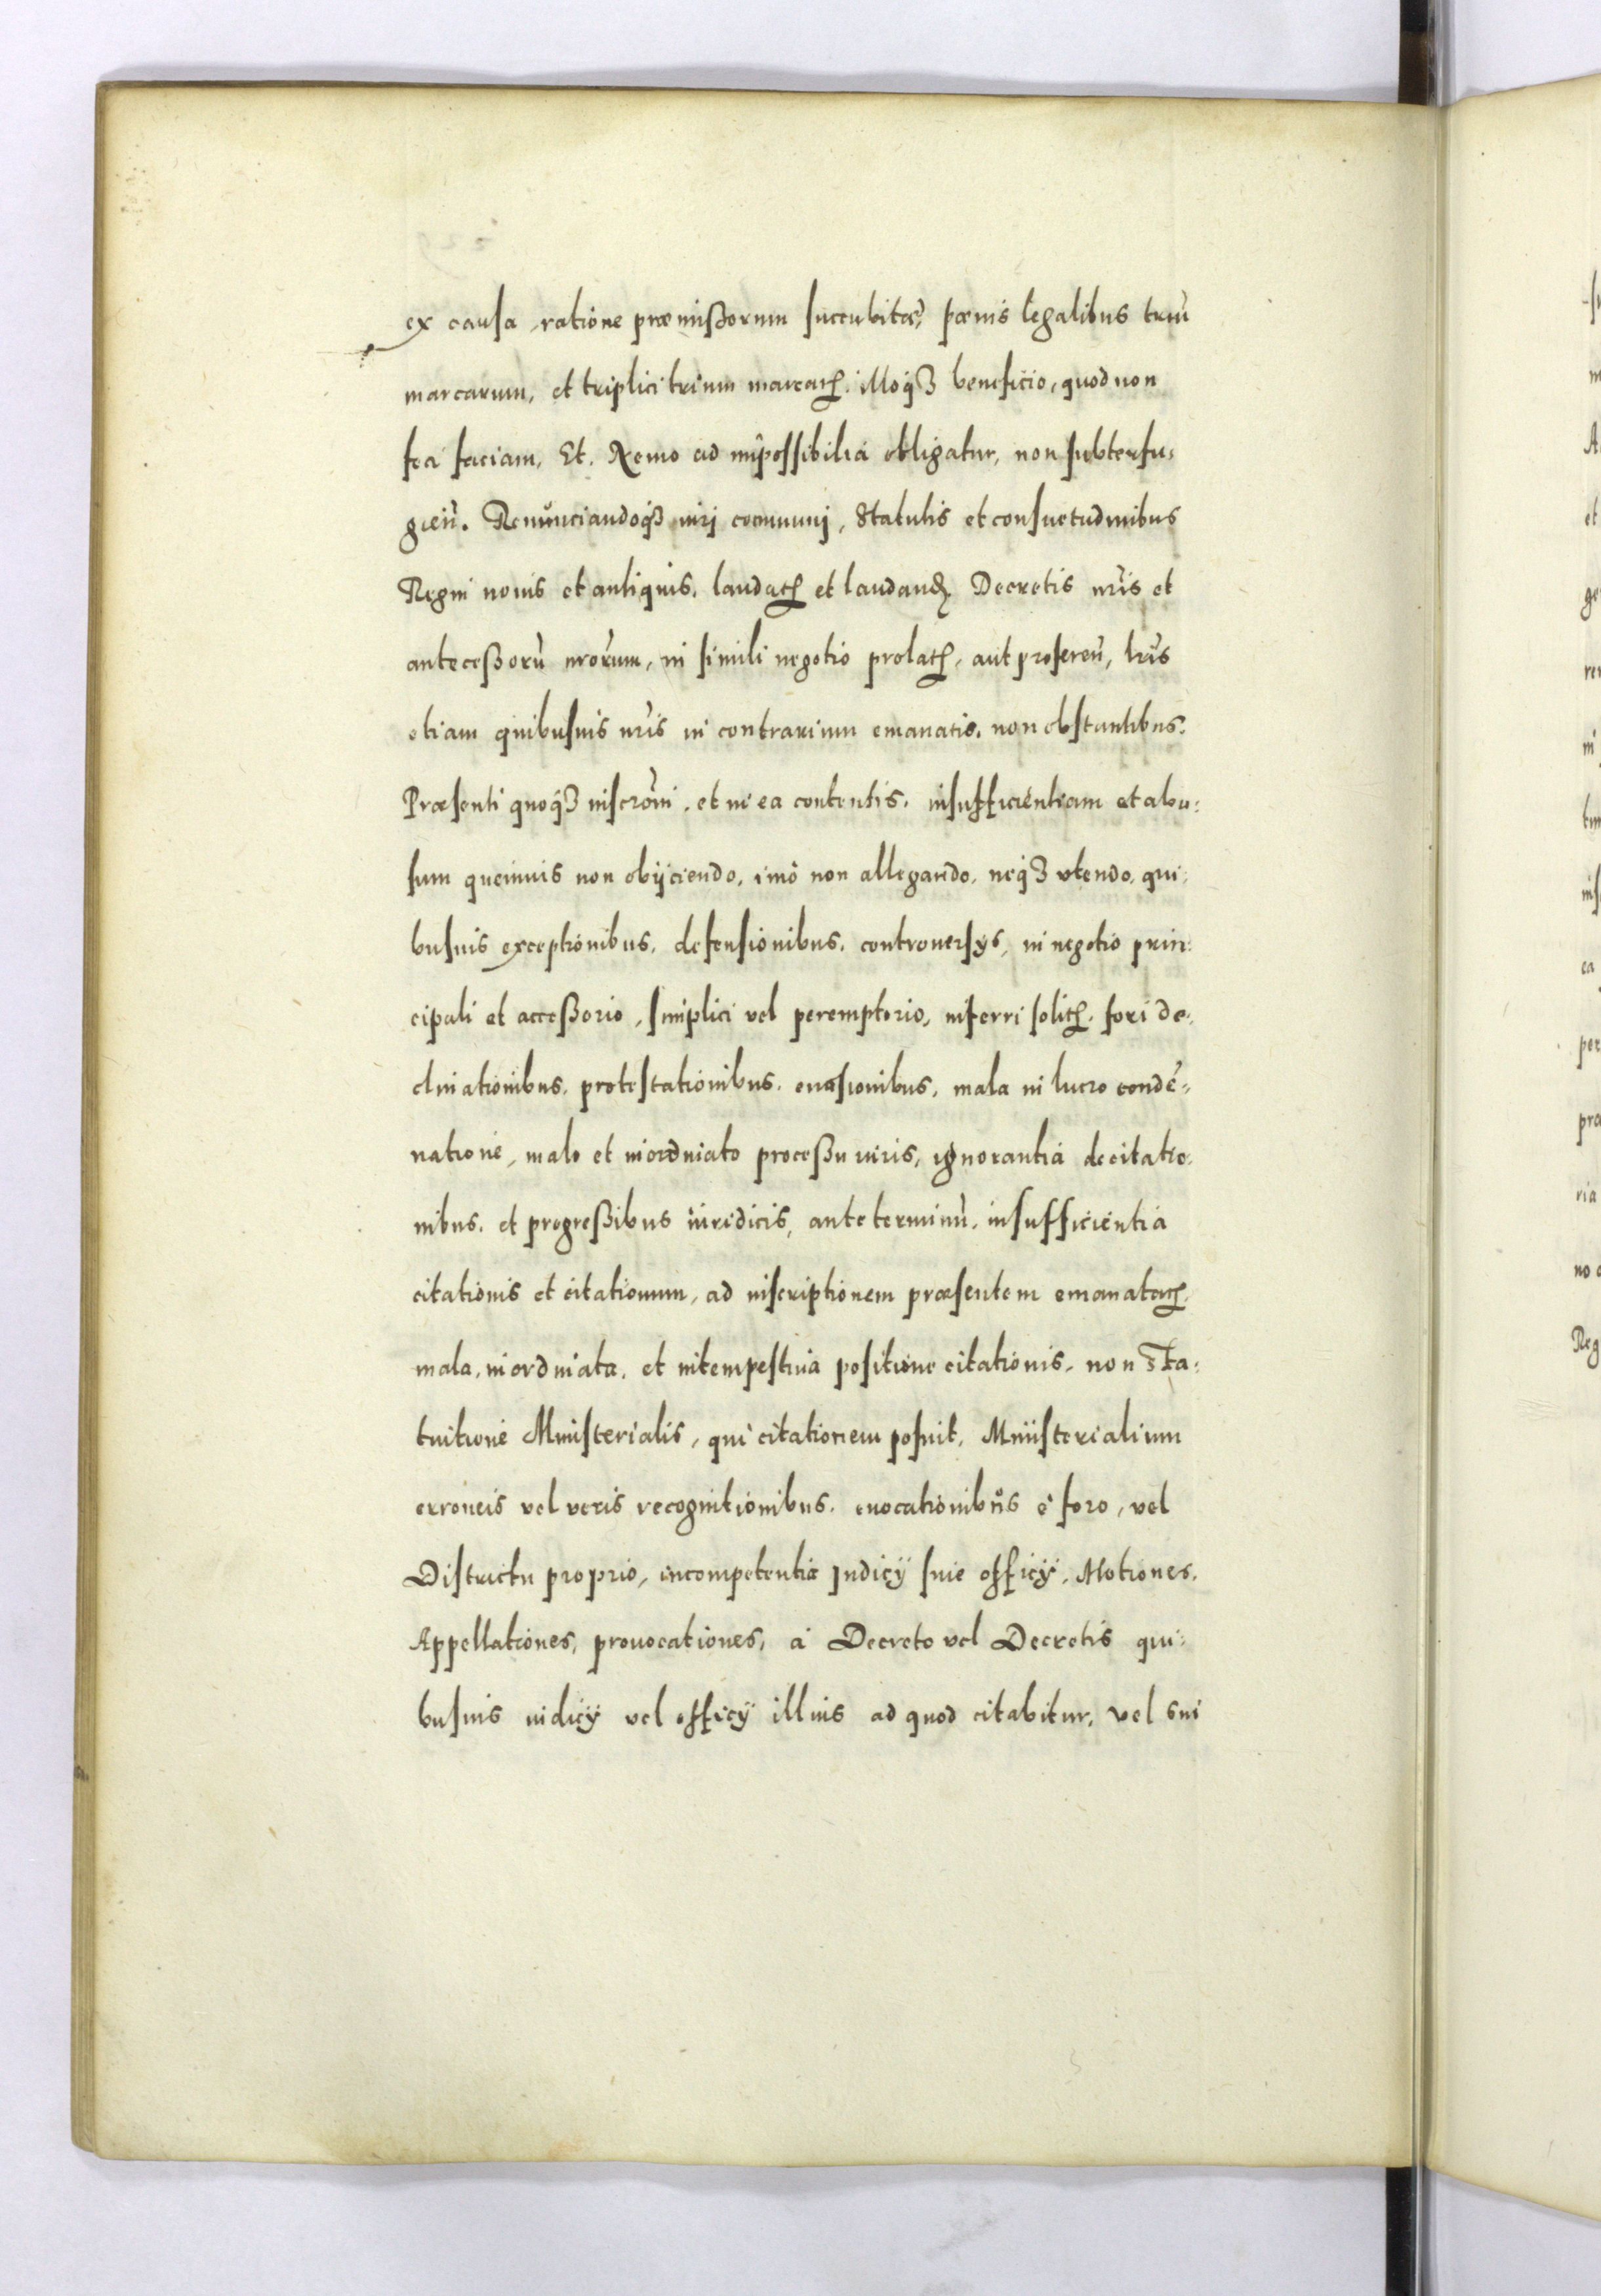 ex causa ratione præmißorum succubitæ, pœnis legalibus triũ
marcarum, et triplici trium marcarꝝ. illoqꝫ beneficio, quod non
fea faciam, Et. Nemo ad impossibilia obligatur, non subterfu⸗
gieñ. Renunciandoqꝫ iurj communj, Statutis et consuetudinibus
Regni nouis et antiquis, laudatꝝ et laudandꝝ Decretis nr̃is et
anteceßorũ nr̃orum, in simili negotio prolatꝝ, aut profereñ, lr̃is
etiam quibusuis nr̃is in contrarium emanatis, non obstantibus.
Præsenti quoqꝫ inscrõni, et in ea contentis, insufficientiam et abu⸗
sum quemuis non obijciendo, imò non allegando, neqꝫ vtendo, qui⸗
busuis exceptionibus, defensionibus, controuersijs, in negotio prin⸗
cipali et acceßorio, simplici vel peremptorio, inferri solitꝝ, fori de⸗
clinationibus, protestationibus, euasionibus, mala in lucro condẽ⸗
natione, malo et inordinato proceßu iuris, ignorantia de citatio⸗
nibus, et progreßibus iuridicis, ante terminũ, insufficientia
citationis et citationum, ad inscriptionem præsentem emanatarꝝ,
mala, inordinata, et intempestiua positione citationis, non sta⸗
tuitione Ministerialis, qui citationem posuit, Ministerialium
erroneis vel veris recognitionibus, euocationibus è foro, vel
Districtu proprio, incompetentia Judicij siue officij, Motiones,
Appellationes, prouocationes, à Decreto vel Decretis qui⸗
busuis iudicij vel officij illius ad quod citabitur, vel sui